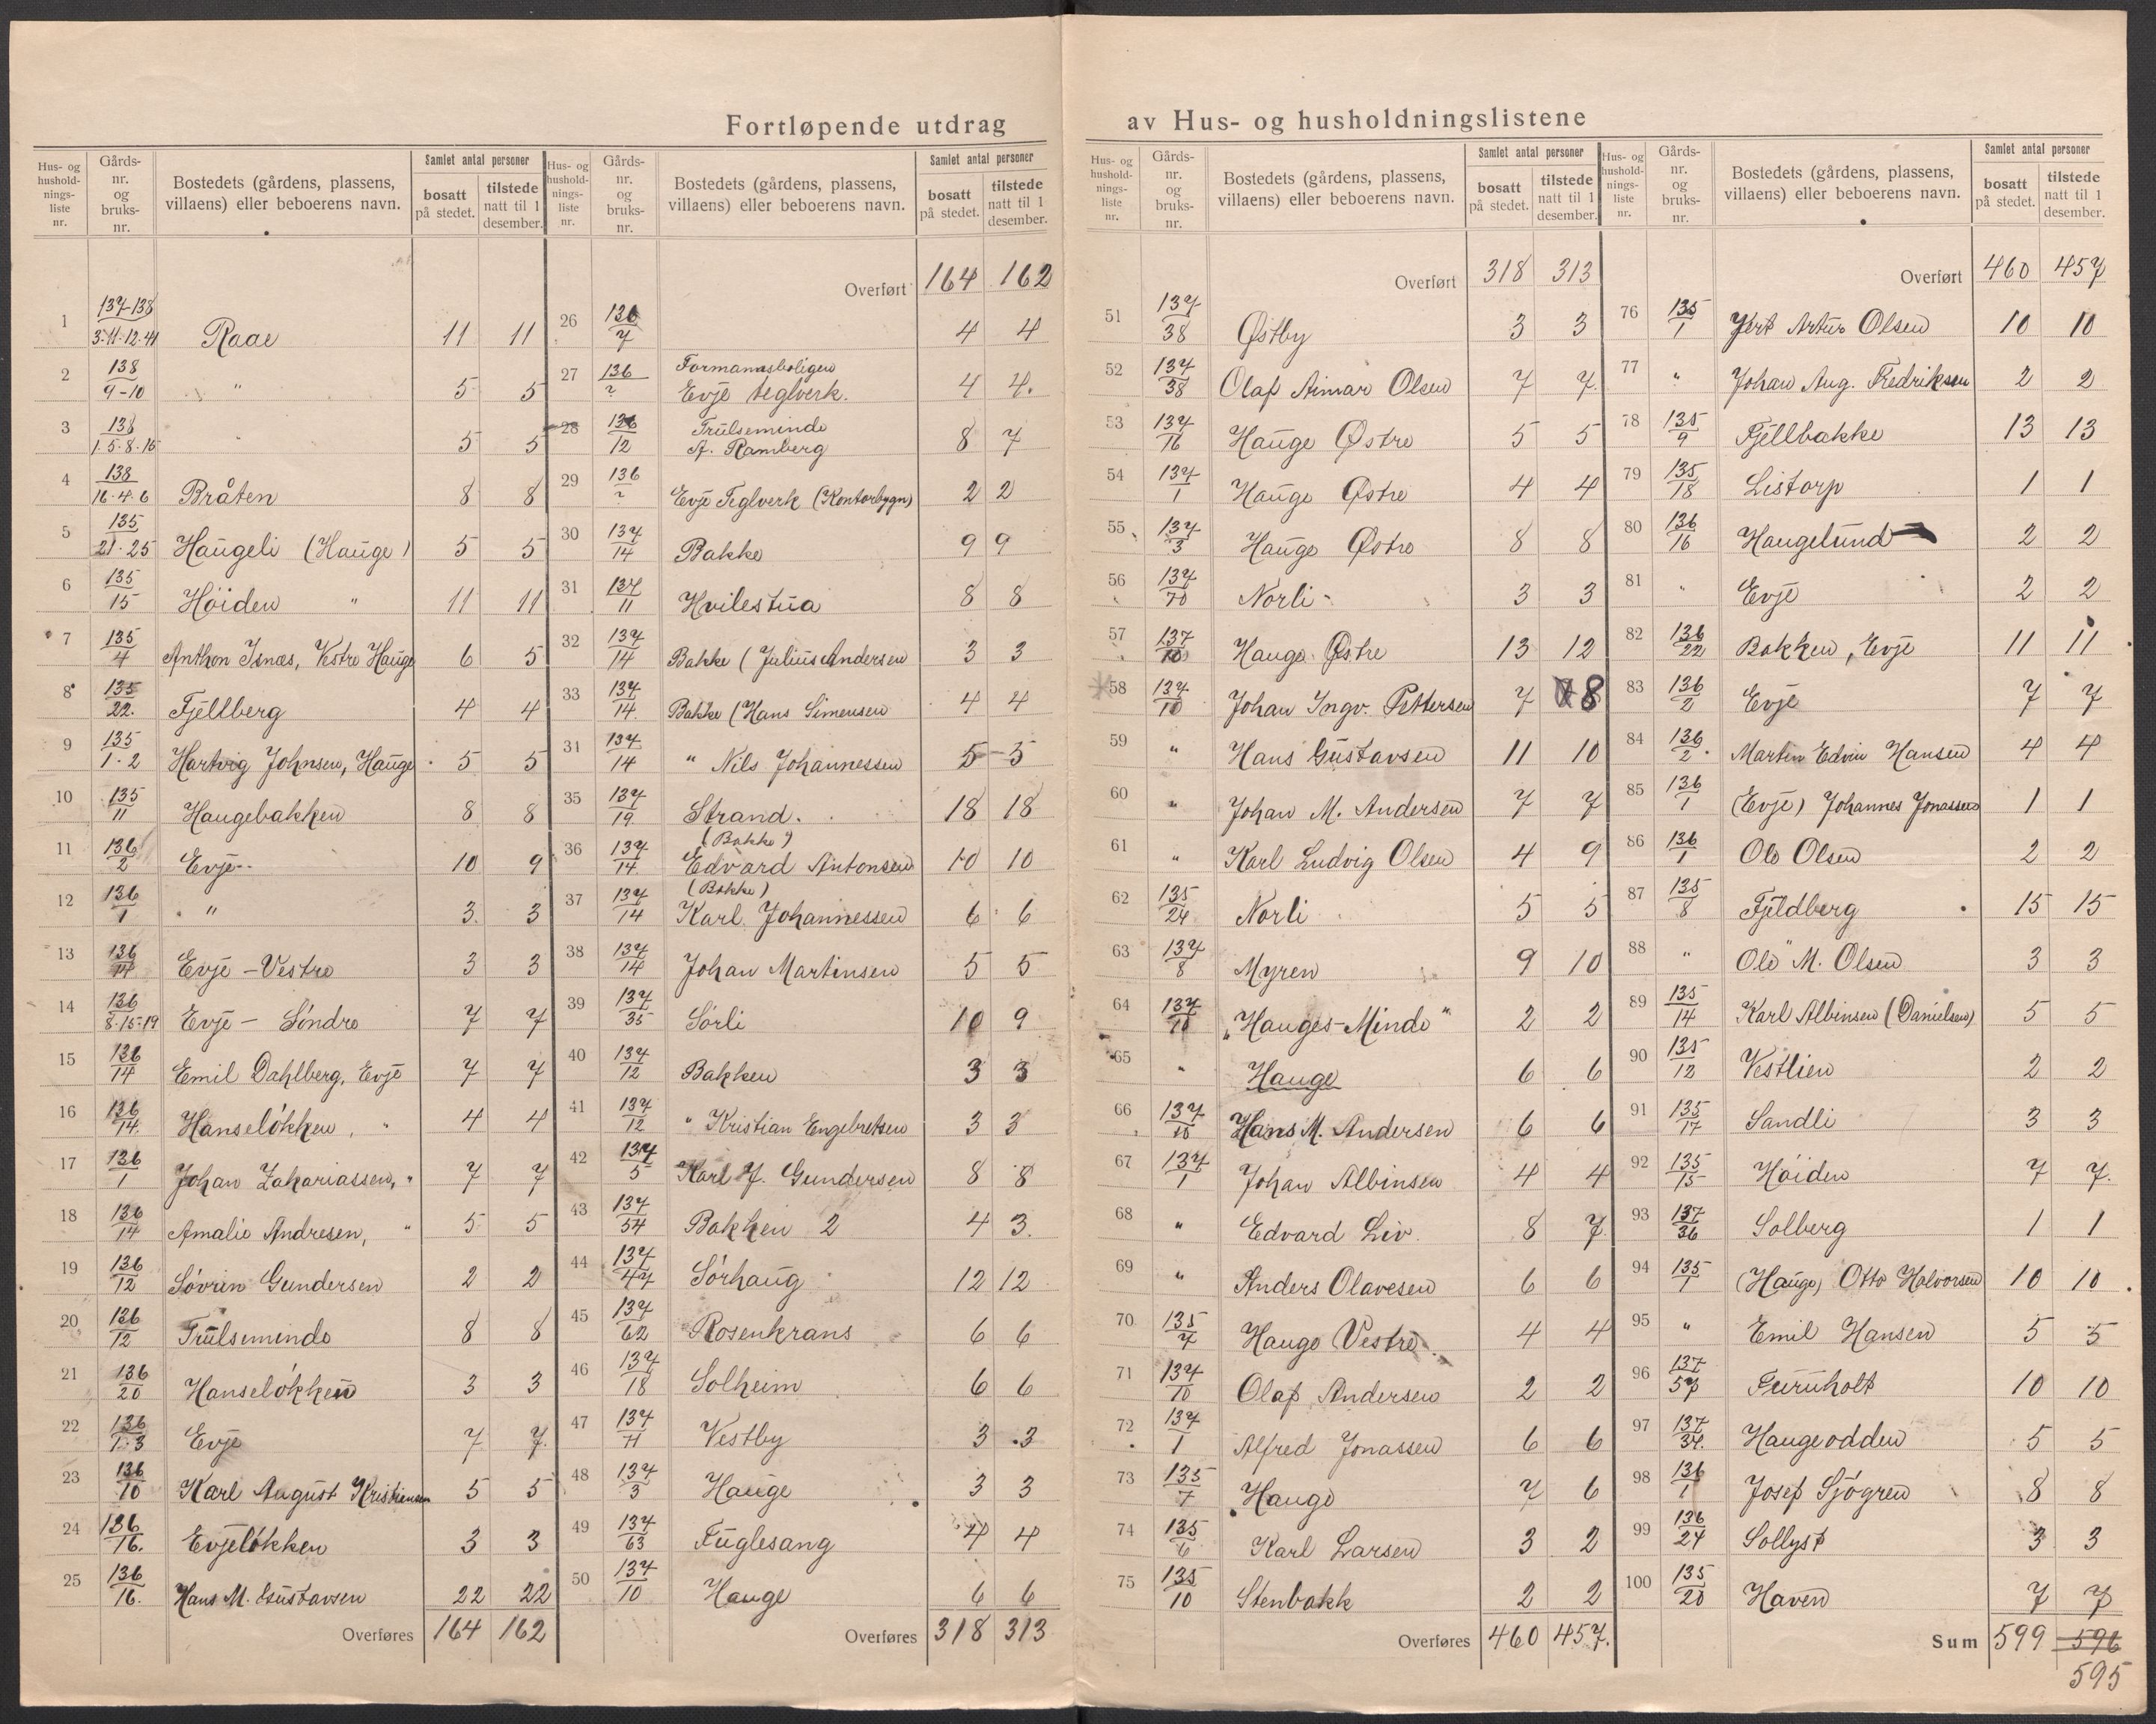 Fortløpende utdrag av Hus- og husholdningslistene
Hus- og hushold-nings-liste nr. | Gårds-nr. og bruks-nr. | Bostedets (gårdens, plassens, villaens) eller beboerens navn. | Samlet antal personer | bosatt på stedet. | tilstede natt til 1 desember.
1 137-138/3·11·12·41 Raae 11 11
2 138/9-10 " 5 5
3 138/1·5·8·15 " 5 5
4 138/16·4·6 Bråten 8 8
5 135/21·25 Haugeli (Hauge) 5 5
6 135/15 Höiden " 11 11
7 135/4 Anthon Isnæs, Vestre Hauge 6 5
8 135/22. Fjellberg 4 4
9 135/1·2 Hartvig Johnsen, Hauge 5 5
10 135/11 Haugebakken 8 8
11 136/2 Evje 10 9
12 136/1 " 3 3
13 136/14 Evje - Vestre 3 3
14 136/8·15·19 Evje - Söndre 7 7
15 136/14 Emil Dahlberg, Evje 7 7
16 136/14. Hanselökken, " 4 4
17 136/1 Johan Zakariassen, " 7 7
18 136/14 Amalie Andresen, " 5 5
19 136/12 Sövrin Gundersen 2 2
20 136/12 Trulseminde 8 8
21 136/20 Hanselökken 3 3
22 136/1·3 Evje 7 7
23 136/10 Karl August Kristiansen 5 5
24 136/16. Evjelökken 3 3
25 136/16. Hans M. Gustavsen 22 22
Overføres 164 162
Overført 164 162
26 136/7 4 4
27 136/? Formannsboligen Evje teglverk. 4 4.
28 136/12 Trulseminde A. Ramberg 8 7
29 136/? Evje Teglverk (Kontorbygn) 2 2
30 137/14 Bakke 9 9
31 137/11 Hvilestua 8 8
32 137/14 Bakke (Julius Andersen 3 3
33 137/14. Bakke (Hans Simensen 4 4
31 137/14 " Nils Johannessen 5 5
35 137/19. Strand. 18 18
36 137/14. (Bakke) Edvard Antonsen 10 10
37 137/14 (Bakke) Karl Johannessen 6 6
38 137/14 Johan Martinsen 5 5
39 137/35 Sörli 10 9
40 137/12 Bakken 3 3
41 137/12 " Kristian Engebretsen 3 3
42 137/5 Karl J. Gundersen 8 8
43 137/54 Bakken 2 4 3.
44 137/47 Sörhaug 12 12
45 137/62 Rosenkrans 6 6
46 137/18 Solheim 6 6
47 137/11 Vestby 3 3
48 137/3 Hauge 3 3
49 137/63 Fuglesang 4 4
50 137/10 Hauge 6 6
Overføres 318 313
Overført 318 313
51 137/38 Østby 3 3
52 137/38 Olaf Aimar Olsen 7 7
53 137/16 Hauge Østre 5 5
54 137/1 Hauge Østre 4 4
55 137/3 Hauge Østre 8 8
56 137/70 Norli 3 3
57 137/10 Hauge Østre 13 12
58 137/10 Johan Ingv. Pettersen 7 8
59 " Hans Gustavsen 11 10
60 " Johan M. Andersen 7 7
61 " Karl Ludvig Olsen 4 9
62 135/24 Norli 5 5
63 137/8 Myren 9 10
64 137/10 "Hauges-Minde" 2 2
65 " Hauge 6 6
66 137/10 Hans M. Andersen 6 6
67 137/1 Johan Albinsen 4 4
68 " Edvard Liv. 8 7
69 " Anders Olavesen 6 6
70 135/7 Hauge Vestre 4 4
71 137/10 Olaf Andersen 2 2
72 137/1 Alfred Jonassen 6 6
73 135/7 Hauge 7 6
74 135/6 Karl Larsen 3 2
75 135/10 Stenbakk 2 2
Overføres 460 457.
Overført 460 457
76 135/1 Artur Olsen 10 10
77 " Johan Aug. Fredriksen 2 2
78 135/9 Fjellbakke 13 13
79 135/18 Listorp 1 1
80 136/16 Haugelund 2 2
81 " Evje 2 2
82 136/22 Bakken, Evje 11 11
83 136/2 Evje 7 7
84 136/2. Martin Edvin Hansen 4 4
85 136/1 (Evje) Johannes Jonassen 1 1
86 136/1 Ole Olsen 2 2
87 135/8 Fjeldberg 15 15
88 " Ole M. Olsen 3 3
89 135/14 Karl Albinsen (Danielsen) 5 5
90 135/12 Vestlien 2 2
91 135/17 Sandli 3 3
92 135/15 Höiden 7 7.
93 137/36 Solberg 1 1
94 135/1 (Hauge) Otto Halvorsen 10 10
95 " Emil Hansen 5 5
96 137/57 Furuholt 10 10
97 137/34. Haugeodden 5 5
98 136/1 Josef Sjögren 8 8
99 136/24 Sollyst 3 3
100 135/20 Haven 7 7
Sum 599 596
595